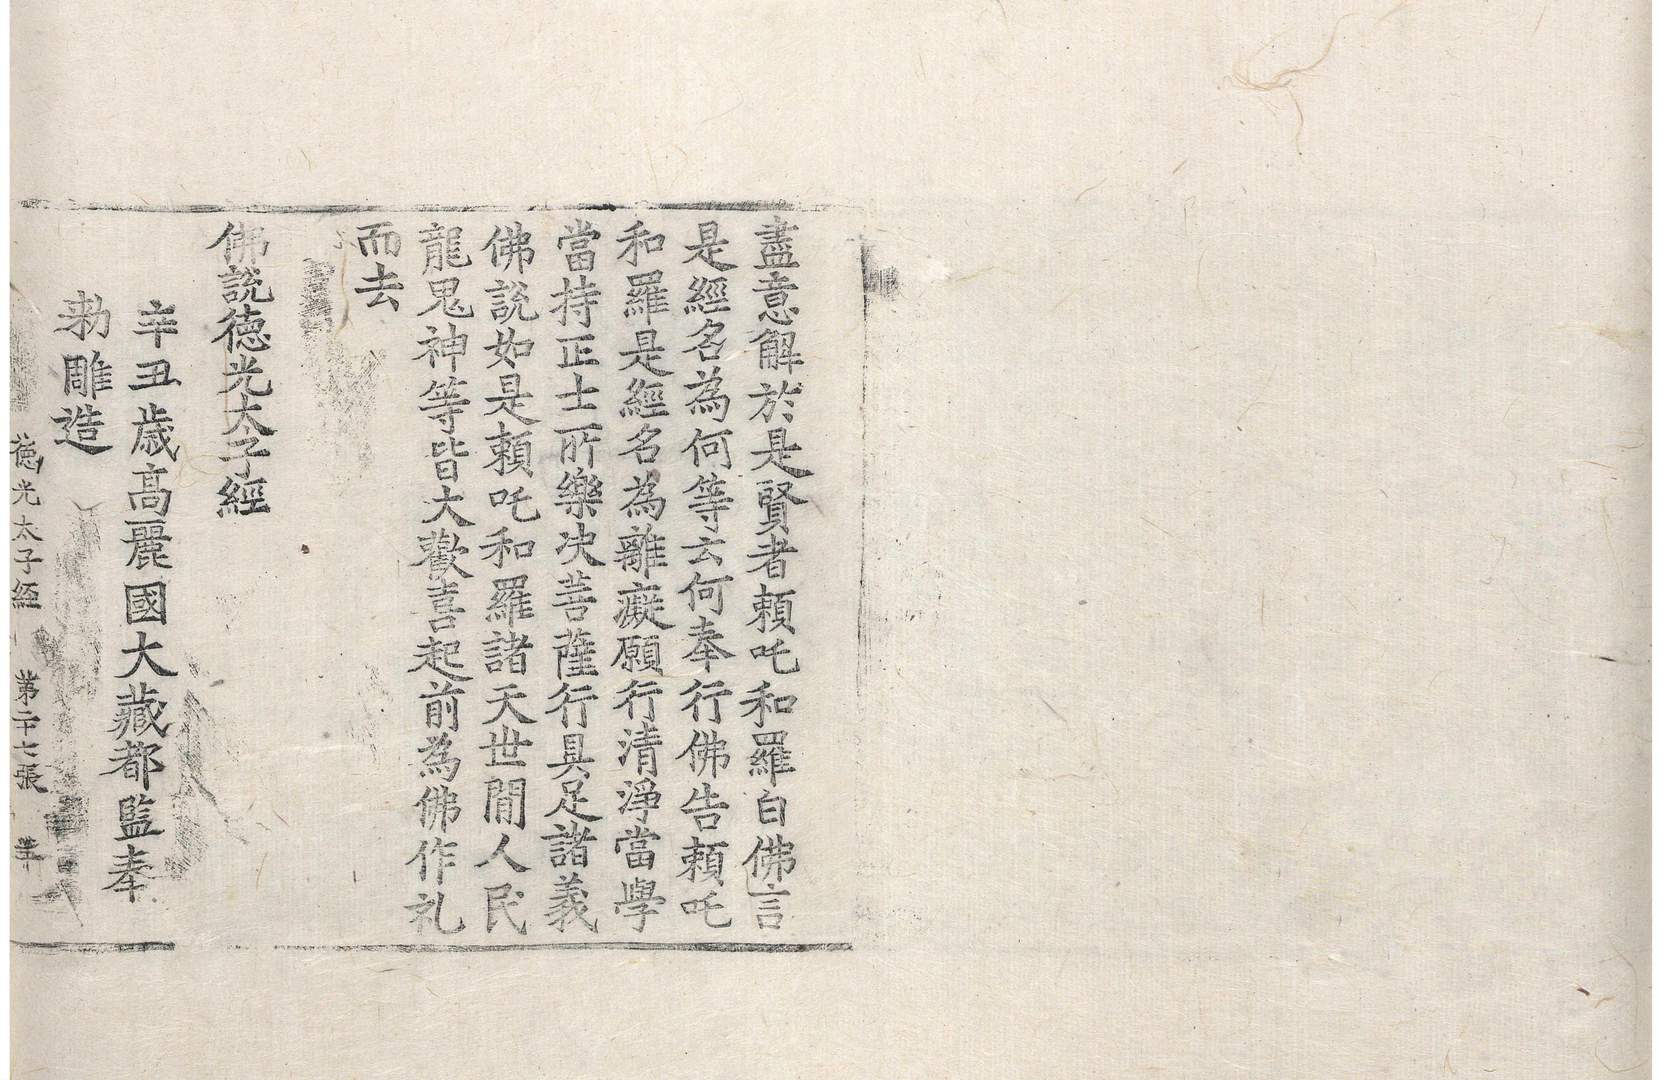 盡意解於是賢者頼吒和羅白佛言
是經名為何等云何奉行佛告頼吒
和羅是經名為離癡願行清淨當學
當持正士所樂决菩薩行具足諸義
佛說如是頼吒和羅諸天世間人民
龍鬼神等皆大歡喜起前為佛作礼
而去
佛說德光太子經
辛丑歳高麗國大藏都監奉
勅雕造
德光太子經 第二十七張